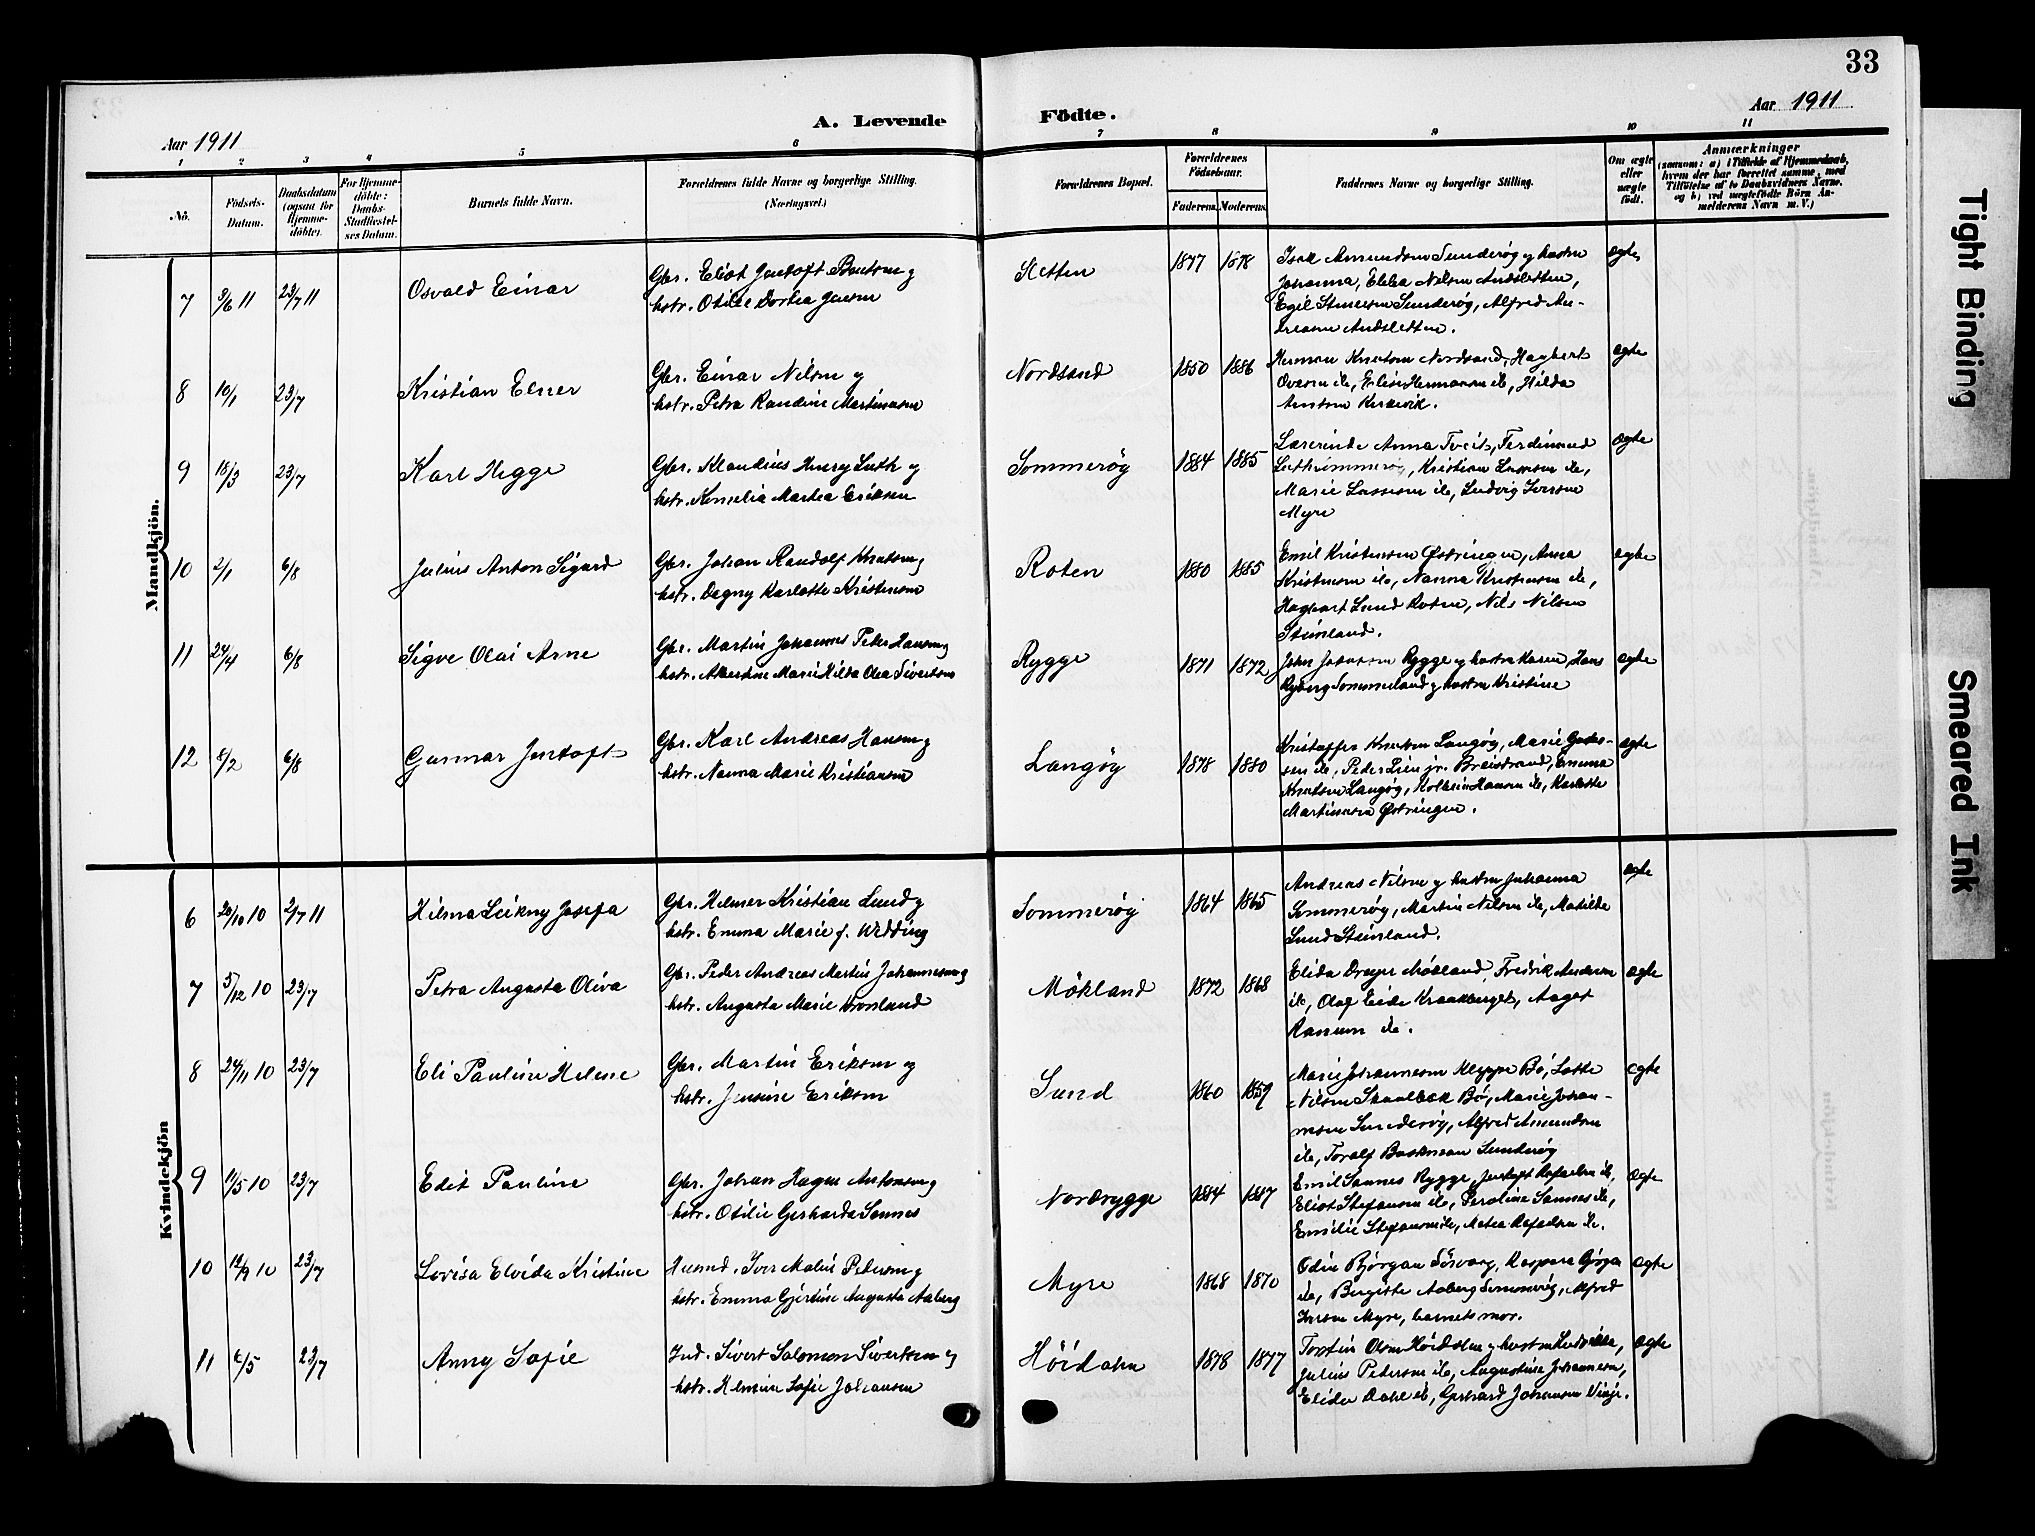 33
Aar 1911
A. Levende
Födte.
Aar 1911
1 2 3 4 5 6 7 8 9 10 11
No.
Födsels-
Datum.
Daabsdatum
(ogsaa for
Hjemme-
döbte).
For Hjemme-
döbte:
Daabs-
Stadfæstel-
ses Datum.
Barnets fulde Navn.
Forældrenes fulde Navne og borgerlige Stilling.
(Næringsvei.)
Forældrenes Bopæl.
Forældrenes
Födselsaar.
Faderens. Moderens.
Faddernes Navne og borgerlige Stilling.
Om ægte
eller
uægte
födt.
Anmærkninger
(saasom: a) i Tilfælde af Hjemmedaab,
hvem der har forrettet samme, med
Tilföielse af to Daabsvidners Navne,
og b) ved uægtefödte Börn An-
melderens Navn m. V.)
Mandkjön.
7 3/6 11 23/7 11 Osvald Einar
Gbr. Eliot Jentoft Bentsen og
hstr. Otilie Dortea Jensen
Sletten 1877 1878
Isak Amundsen Sunderøg og hustru
Johanna, Ebba Nilsen Andsletten,
Egil Steffensen Sunderøg, Alfred An-
dreasen Andsletten.
ægte
8 10/1 23/7 Kristian Elner
Gbr. Einar Nilsen og
hstr. Petra Randine Martinussen
Nordsand 1850 1886
Herman Knutsen Nordsand, Hagbart
Ovesen ib, Elise Hermansen ib, Hilda
Antonsen
ægte
9 18/3 23/7 Karl Hegge
Gbr. Klaudius Henry Luth og
hstr. Kornelia Martea Eriksen
Sommerøg 1884 1885
Lærerinde Anna Tveit, Ferdinand
Luth Sommerøg, Kristian Lassesen ib,
Marie Lassesen ib, Ludvig Iversen
Myre
ægte
10 2/1 6/8 Julius Anton Sigurd
Gbr. Johan Randolf Knutsen og
hstr. Dagny Karlotte Kristensen
Roten 1880 1885
Emil Kristensen Østringen, Anna
Kristensen ib, Nanna Kristensen ib,
Hagbart Lund Roten, Nils Nilsen
Steinland.
ægte
11 24/4 6/8 Sigve Olai Arne
Gbr. Martin Johannes Peter Hansen og
hstr. Albertine Marie Hilda Olea Sivertsen
Rygge 1871 1872
John Johnsen Rygge og hustru Karen, Hans
Ryberg Sommerland og hustru Kristine
ægte
12 8/2 6/8 Gunnar Jentoft
Gbr. Karl Andreas Hansen og
hstr. Nanna Marie Kristiansen
Langøg 1878 1880
Kristoffer Knutsen Langøg, Marie
sen ib, Peder Lien jr. Breistrand, Emma
Knutsen Langøg, Kolbein Hansen ib, Karlotte
Martinsen Østringen.
ægte
Kvindekjön
6 20/10 10 2/7 11 Hilma Leikny Josefa
Gbr. Helmer Kristian Lund og
hstr. Emma Marie f. Wedding
Sommerøg 1864 1865
Andreas Nilsen og hustru Johanna
Sommerøg, Martin Nilsen ib, Matilde
Lund Steinland.
ægte
7 5/12 10 23/7 Petra Augusta Oliva
Gbr. Peder Andreas Martin Johannesen og
hstr. Augusta Marie Kronland
Mökland 1872 1868
Elida Dreyer Mökland, Fredrik Andersen
ib, Olaf Eide Kraakberget, Aagot
Ranum ib.
ægte
8 24/11 10 23/7 Eli Pauline Helene
Gbr. Martin Eriksen og
hstr. Jensine Eriksen
Sund 1860 1859
Marie Johannesen Kleppe Bö, Lotte
Nilsen Skaalbak Bö, Marie Johan-
nesen Sunderøg, Alfred Amundsen
ib, Toralf Sunderøg
ægte
9 11/5 10 23/7 Edit Pauline
Gbr. Johan Hagen Antonsen og
hstr. Otilie Gerharda Sannes
Nordrygge 1884 1887
Emil Sannes Rygge, Jentoft Rafaelsen ib,
Eliot Stefansen ib, Paroline Sannes ib,
Emilie Stefansen ib, Matea Rafaelsen ib.
ægte
10 18/9 10 23/7 Lovisa Elvida Kristine
Husmd. Iver Malin Pedersen og
hstr. Emma Gjertine Augusta Aaberg
Myre 1868 1870
Odin Bjørgan Sörvaag, Kaspara Bjørgan
ib, Birgitte Aaberg Sommerøg, Alfred
Iversen Myre, barnets mor.
ægte
11 6/5 23/7 Anny Sofie
Ind. Sivert Salomon Sivertsen og
hstr. Helmine Sofie Johansen
Höidahn 1878 1877
Torstein Olsen Höidalen og hustru Ludvikka,
Julius Pedersen ib, Augustine Johannesen,
Elida Dahl ib, Gerhard Johansen Vinje.
ægte
Tight Binding
Smeared Ink